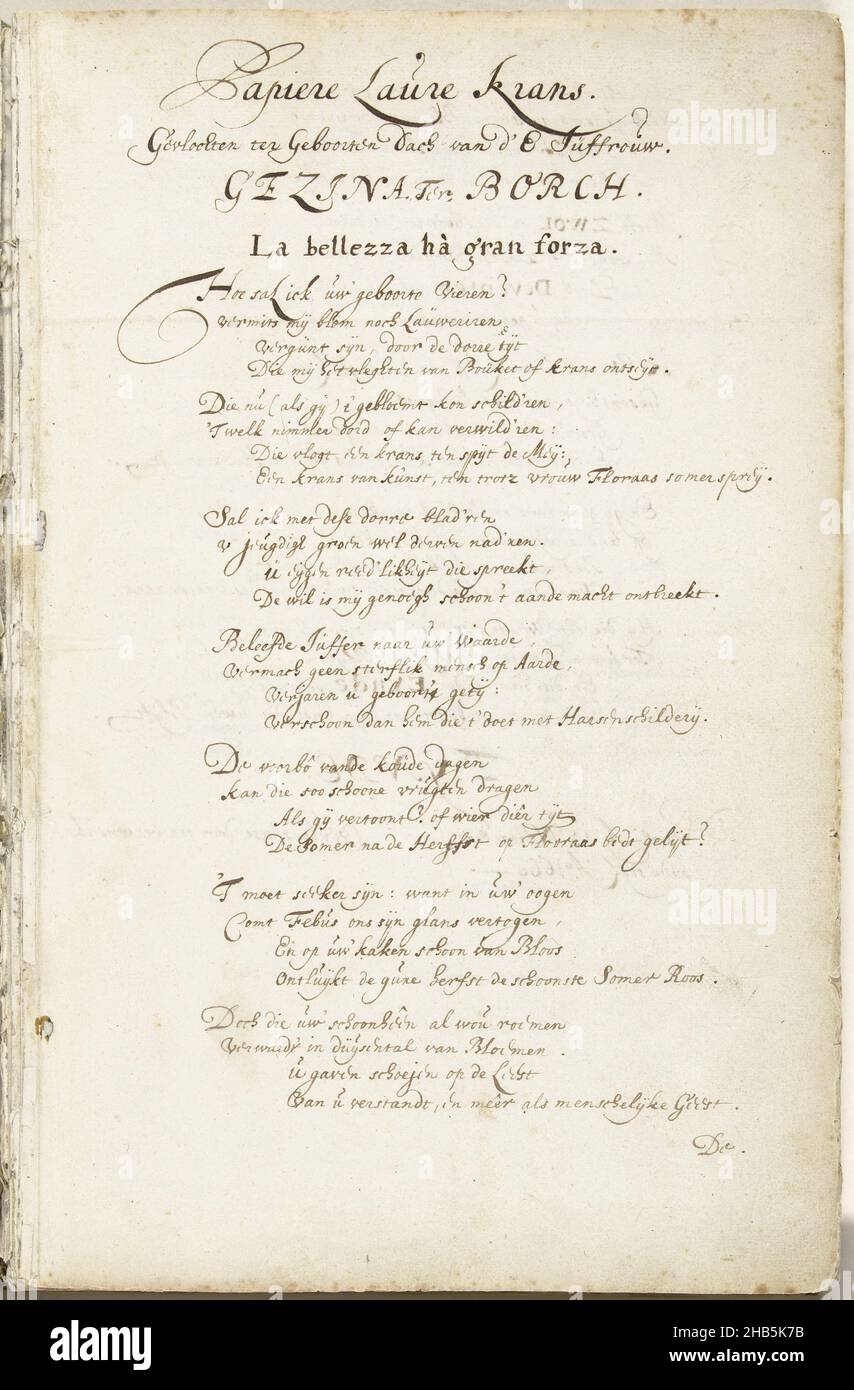 Papiere Laure Krans.
Gevlochten ter Geboorten Dach van d' E Juffrouw.
GEZINA. Ter. BORCH.
La bellezza hà gran forza.
Hoe sal ick uw' geboorte vieren?
vermits mij blom noch Lauwerieren
vergunt sijn, door de dorre tijt
Die mij het vleghten van Bouket of krans ontseijt.
Die nu (als gij) 't gebloemt kon schild'ren,
'Twelk nimmer dord of kan verwild'ren:
Die vlogt een krans ten spijt de Meij:,
Een krans van kunst, ten trotz vrouw Floraas somersprey.
Sal ick met dese dorre blad'ren
v jeugdigh groen wel derven nad'ren.
u eijgen reed'likheijt die spreekt,
De wil is mij genoegh schoon 't aande macht ontbreekt.
Beleefde Juffer naar uw' waarde,
Vermach geen sterflik mensch op Aarde,
Verjaren u geboorts getij:
Verschoon dan hem die 't doet met Harsenschilderij.
De voorbô vande koude dagen
kan die soo schoone vrugten dragen
Als gij vertoont? of wier diêr tijt
De Somer na de Herfst op Flooraas bedt gelijt?
'T moet seeker sijn: want in uw' oogen
Comt Febus ons sijn glans vertogen,
En op uw' kaken schoon van Bloos
Ontluijkt de gure herfst de schoonste Somer Roos.
Doch die uw' schoonheên al wou roemen
Verward' in duijsental van Bloemen.
u gaven schoejen op de Leest
Van u verstandt, en meêr als menschelijke Geest.
De.
alamy
Image ID: 2HB5K7B
www.alamy.com